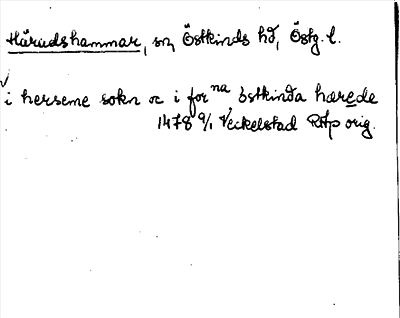 Häradshammar, sn, Östkinds hd, Östg. l.
i herseme sokn oc i for na, østkinda hærede
1478 9/1 Veckelstad RAp orig.